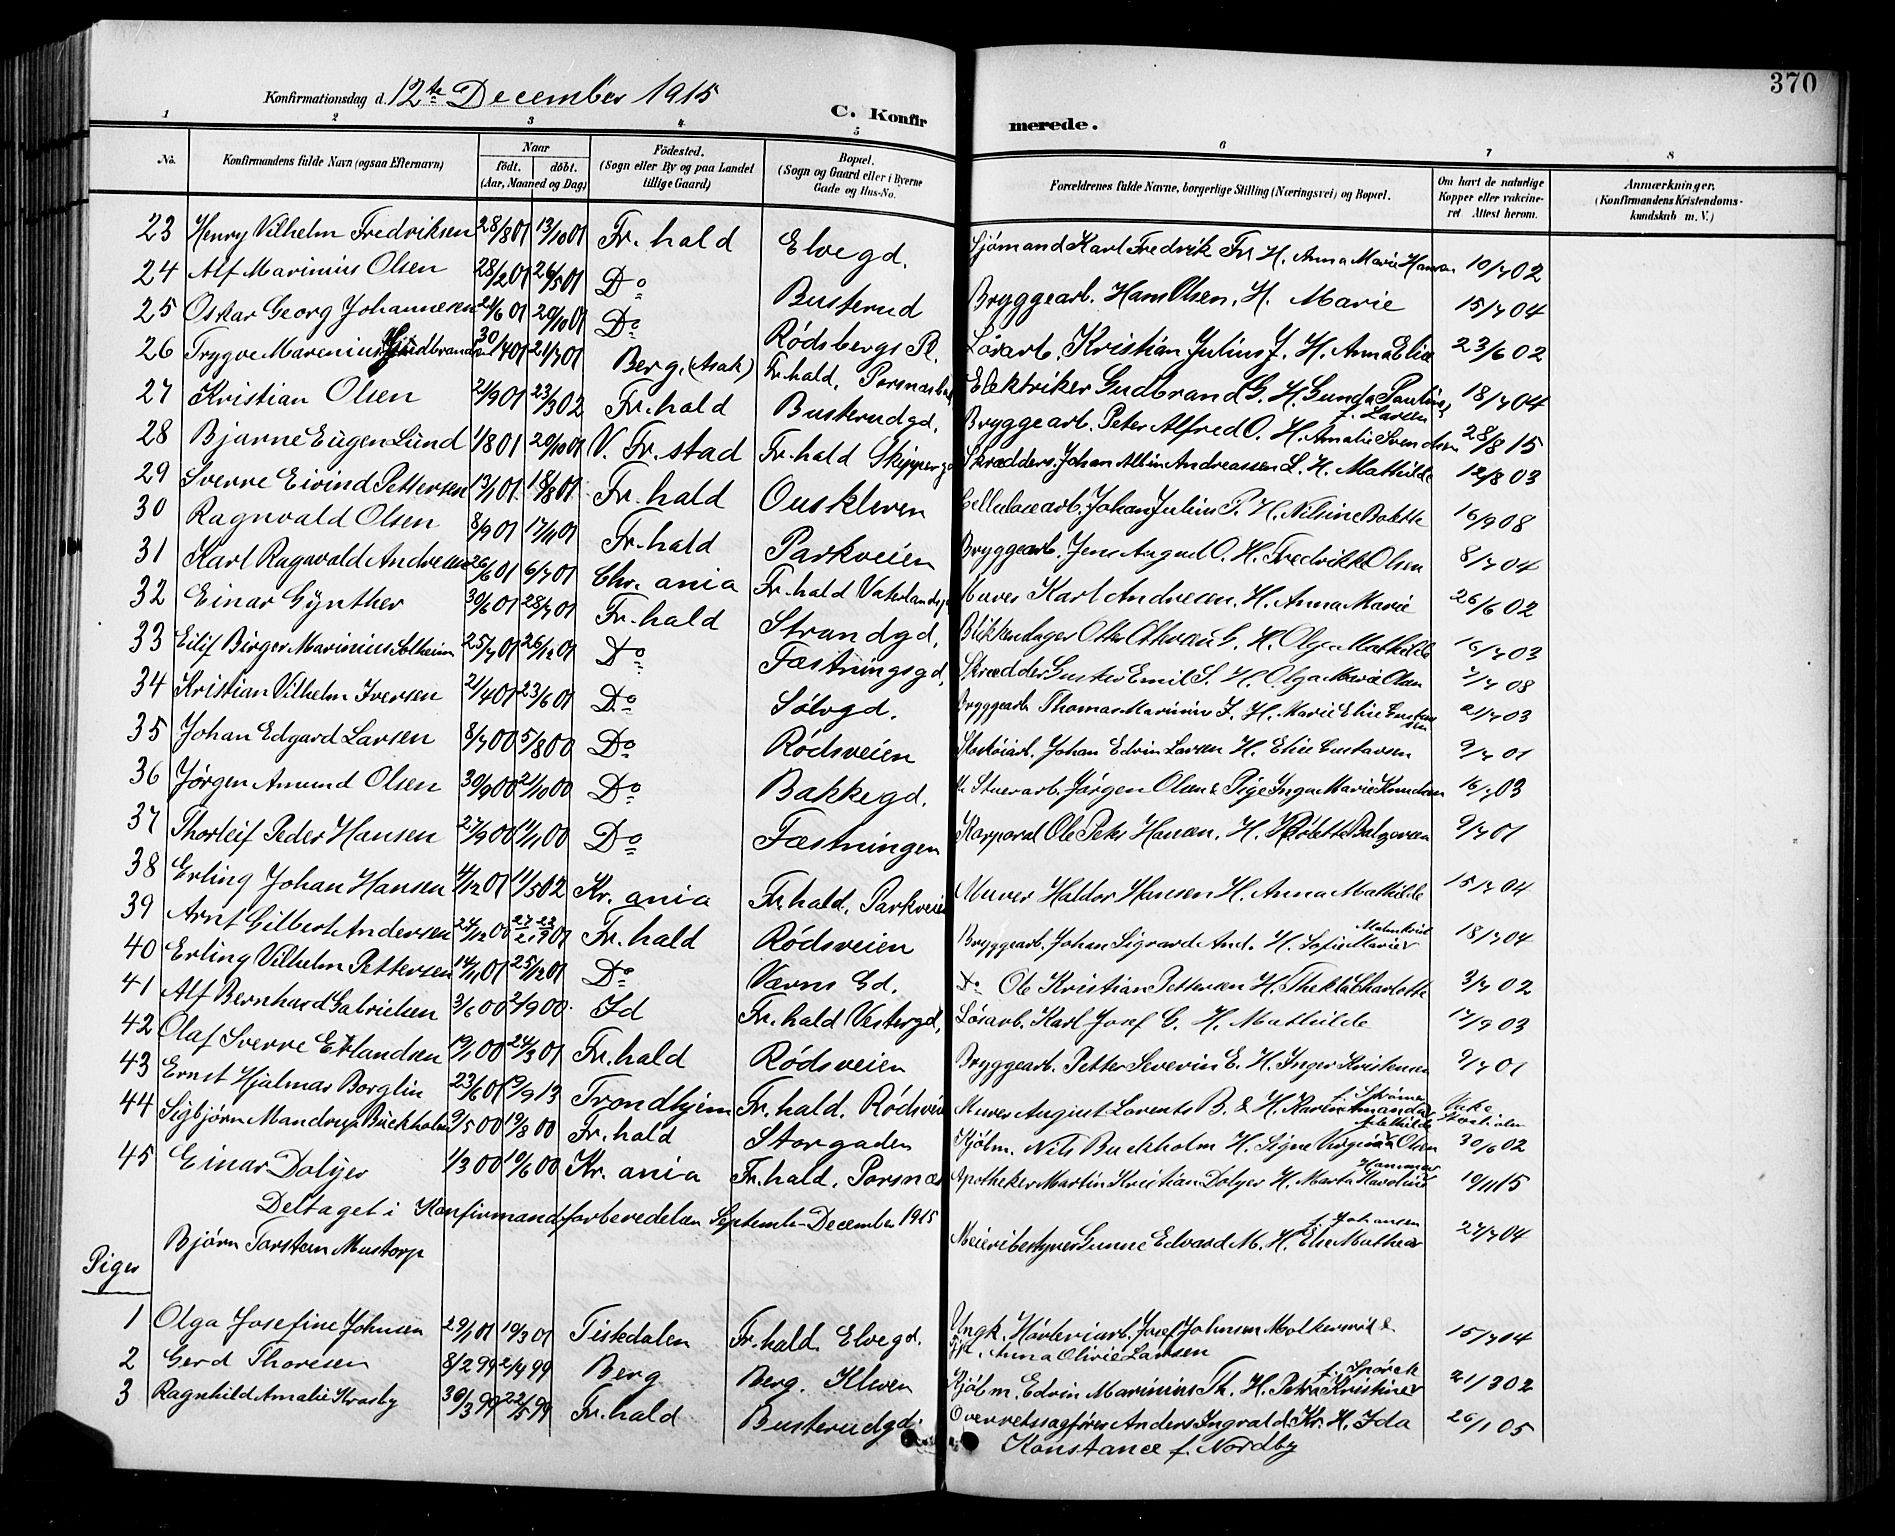 370
Konfirmationsdag d. 12te December 1915
C. Konfirmerede.
1 2 3 4 5 6 7 8
No. Konfirmandens fulde Navn (ogsaa Efternavn) Naar født. døbt. (Aar, Maaned og Dag) Fødested. (Sogn eller By og paa Landet tillige Gaard) Bopæl. (Sogn og Gaard eller i Byerne Gade og Hus-No. Forældrenes fulde Navne, borgerlige Stilling (Næringsvei) og Bopæl. Om havt de naturlige Kopper eller vakcineret Attest herom. Anmærkninger. (Konfirmandens Kristendomskundskab m. V.)
23 Henry Vilhelm Fredriksen 28/8 01 13/10 01 Fr.hald Elvegd. Sjømand Karl Fredrik Fr. H. Anna Marie Hansen 10/7 02
24 Alf Marinius Olsen 28/2 01 26/5 01 Do Busterud Bryggearb. Hans Olsen, H. Marie 15/7 04
25 Oskar Georg Johannesen 21/6 01 20/10 01 Do Rødsbergs Pl. Løsarb. Kristian Julius J. H. Anna Elise 23/6 02
26 Trygve Marenius Gudbrandsen 30/4 01 21/7 01 Berg (Asak) Fr.hald, Porsnæs Elektriker Gudbrand G. H. Gunda Pauline f. Larsen 18/7 04
27 Kristian Olsen 21/9 01 23/3 02 Fr.hald Busterudgd. Bryggearb. Peter Alfred O. H. Amalie Svendsen 28/8 15
28 Bjarne Eugen Lund 1/8 01 20/10 01 V. Fr.stad Fr.hald Skippergd Skrædders. Johan Albin Andreassen L. H. Mathilde 12/8 03
29 Sverre Eivind Pettersen 13/7 01 18/8 01 Fr.hald Ouskleven Cellulosearb. Johan Julius P. H. Nilsine Bolette 16/9 08
30 Ragnvald Olsen 8/9 01 17/11 01 Fr.hald Parkveien Bryggearb. Jens August O. H. Fredrikke Olsen 8/7 04
31 Karl Ragnvald Andresen 26/6 01 6/7 01 Chr.ania Fr.hald Vaterlandsgd Murer Karl Andresen, H. Anna Marie 26/6 02
32 Einar Gynther 30/6 01 28/7 01 Fr.hald Strandgd. Blikkenslager Otto G. H. Olga Mathilde 16/7 03
33 Eilif Birger Marinius Solheim 25/7 01 26/12 01 Do Fæstningsgd. Skrædder Gustav Emil S. H. Olga Marie Olsen 2/7 08
34 Kristian Vilhelm Iversen 21/4 01 23/6 01 Do Sølvgd. Bryggearb. Thomas Marinius I. H. Marie Elise Gustavsen 21/7 03
35 Johan Edgard Larsen 8/7 00 5/8 00 Do Rødsveien Skotøiarb. Johan Edvin Larsen H. Elise Gustavsen 9/7 01
36 Jørgen Amund Olsen 30/9 00 21/10 00 Do Bakkegd. Stuerarb. Jørgen Olsen & Pige Inga Marie Knudsen 16/7 03
37 Thorleif Peder Hansen 27/9 00 11/11 00 Do Fæstningen Korporal Ole Peter Hansen, H. 9/7 01
38 Erling Johan Hansen 4/12 01 11/5 02 Kr.ania Fr.hald. Parkveien Murer Haldor Hansen H. Anna Mathilde 15/7 04
39 Arnt Gilbert Andersen 24/12 00 01 Fr.hald Rødsveien Bryggearb. Johan Sigvard And. H. Sofie Marie f Malmkvist 18/7 04
40 Erling Vilhelm Pettersen 14/11 01 25/12 01 Do Værns Gd. Do Ole Kristian Pettersen H. Thekla Charlotte 3/7 02
41 Alf Bernhard Gabrielsen 3/6 00 2/9 00 Id Fr.hald Vestergd. Løsarb. Karl Josef G. H. Mathilde 17/9 03
42 Olaf Sverre Erlandsen 19/11 00 24/3 01 Fr.hald Rødsveien Bryggearb. Petter Severin E. H. Inger Kristensen 9/7 01
43 Ernst Hjalmar Borglin 23/6 01 19/9 13 Trondhjem Fr.hald. Rødsveien Murer August Laurents B. & H. Karin Amanda f. Strøm
44 Sigbjørn Mandrup Buckholm 9/5 00 19/8 00 Fr.hald Storgaden Kjøbm. Nils Buckholm H. Signe Virginie Mathilde f Olsen 30/6 02
45 Einar Dolyer 1/3 00 10/6 00 Kr.ania Fr.hald. Porsnæs Apotheker Martin Kristian Dolyer H. Marta Karoline Hammer 19/11 15
Deltaget i Konfirmandforberedelsen September-December 1915
Bjørn Torstein Mustorp Meieribestyrer Gunne Edvard M. H. Elise Mathea f. Johansen 27/7 04
Piger
1 Olga Josefine Johnsen 29/1 01 10/3 01 Tistedalen Fr.hald. Elvegd. Ungk. Høvleriarb. Josef Johnsen & Pige, Anna Olivie Larsen 15/7 04
2 Gerd Thoresen 8/2 99 2/4 99 Berg Berg. Kleven Kjøbm. Edvin Marinius Th. H. Petra Kristine f. Spørck 21/3 02
3 Ragnhild Amalie Krosby 30/3 99 22/5 99 Fr.hald Busterudgd. Overretssagfører Anders Ingvald Kr. H. Ida Konstance f. Nordby 26/1 05